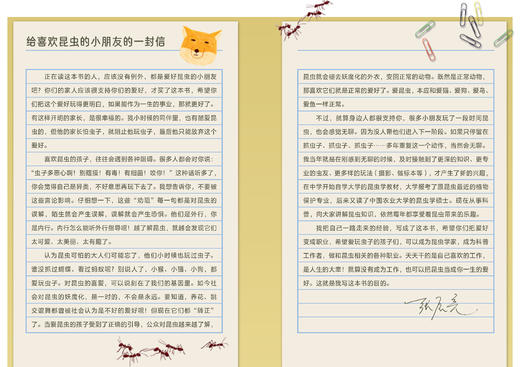 给喜欢昆虫的小朋友的一封信
正在读这本书的人，应该没有例外，都是爱好昆虫的小朋友
吧？你们的家人应该很支持你们的爱好，才买了这本书，希望你
们把这个爱好玩得更明白，如果能作为一生的事业，那就更好了。
有这样开明的家长，是很幸福的。我小时候的同伴里，也有酷爱
昆虫的，但他的家长怕虫子，就阻止他玩虫子，最后他只能放弃这个
爱好。
喜欢昆虫的孩子，往往会遇到各种阻碍。很多人都会对你说：
“虫子多恶心啊！别瞎摸！有毒！有细菌！咬你！”这种话听多了，
你会觉得自己是异类，不好意思再玩下去了。我想告诉你，不要被
这些言论影响。仔细想一下，这些“劝告”每一句都是对昆虫的
误解，陌生就会产生误解，误解就会产生恐惧。他们是外行，你
是内行。内行怎么能听外行指导呢！越了解昆虫，就越会发现它们
太可爱、太美丽、太有趣了。
认为昆虫可怕的大人们可能忘了，他们小时候也玩过虫子。
谁没抓过蝴蝶、看过蚂蚁呢？别说人了，小猴、小猫、小狗，都
爱玩虫子。对昆虫的喜爱，可以说刻在了我们的基因里。如今社
会对昆虫的妖魔化，是一时的，不会是永远。要知道，养花、斜
交谱舞都曾被社会认为是不好的爱好呢！但现在它们都“转正”
了。当爱昆虫的孩子受到了正确的引导，公众对昆虫越来越了解，
昆虫就会褪去妖魔化的外衣，变回正常的动物。既然是正常动物，
那喜欢它们就是正常的爱好了。爱昆虫，本应和爱猫、爱狗、爱鸟、
爱鱼一样正常。
不过，就算身边人都很支持你，很多小朋友玩了一段时间昆
虫，也会感觉无聊。因为没人带他们进入下一阶段。如果只停留在
抓虫子、抓虫子、抓虫子……多年重复这一个动作，当然会无聊。
我当年就是在刚感到无聊的时候，及时接触到了更深的知识、更专
业的虫友、更多样的玩法（摄影、做标本等），才产生了新的兴趣，
在中学开始自学大学的昆虫学教材，大学报考了跟昆虫最近的植物
保护专业，后来又读了中国农业大学的昆虫学硕士。现在从事科
普，向大家讲解昆虫知识，依然每年都享受着昆虫带来的乐趣。
我把自己一路走来的经验，写成了这本书，希望你们把爱好
变成职业，希望爱玩虫子的孩子们，可以成为昆虫学家，成为科普
工作者，做和昆虫相关的各种职业。天天干的是自己喜欢的工作，
是人生的大幸！就算没有成为工作，也可以把昆虫当成你一生的爱
好。这就是我写这本书的目的。
张辰亮